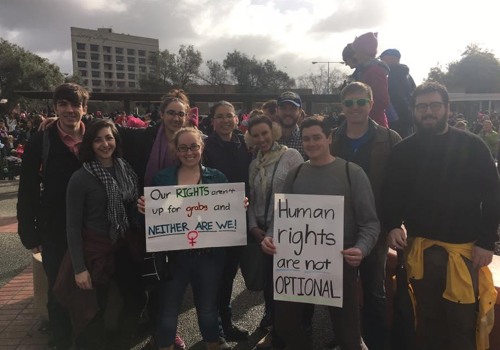 Our RIGHTS aren't
up for grabs and
NEITHER ARE WE!
Human
rights
are not
OPTIONAL